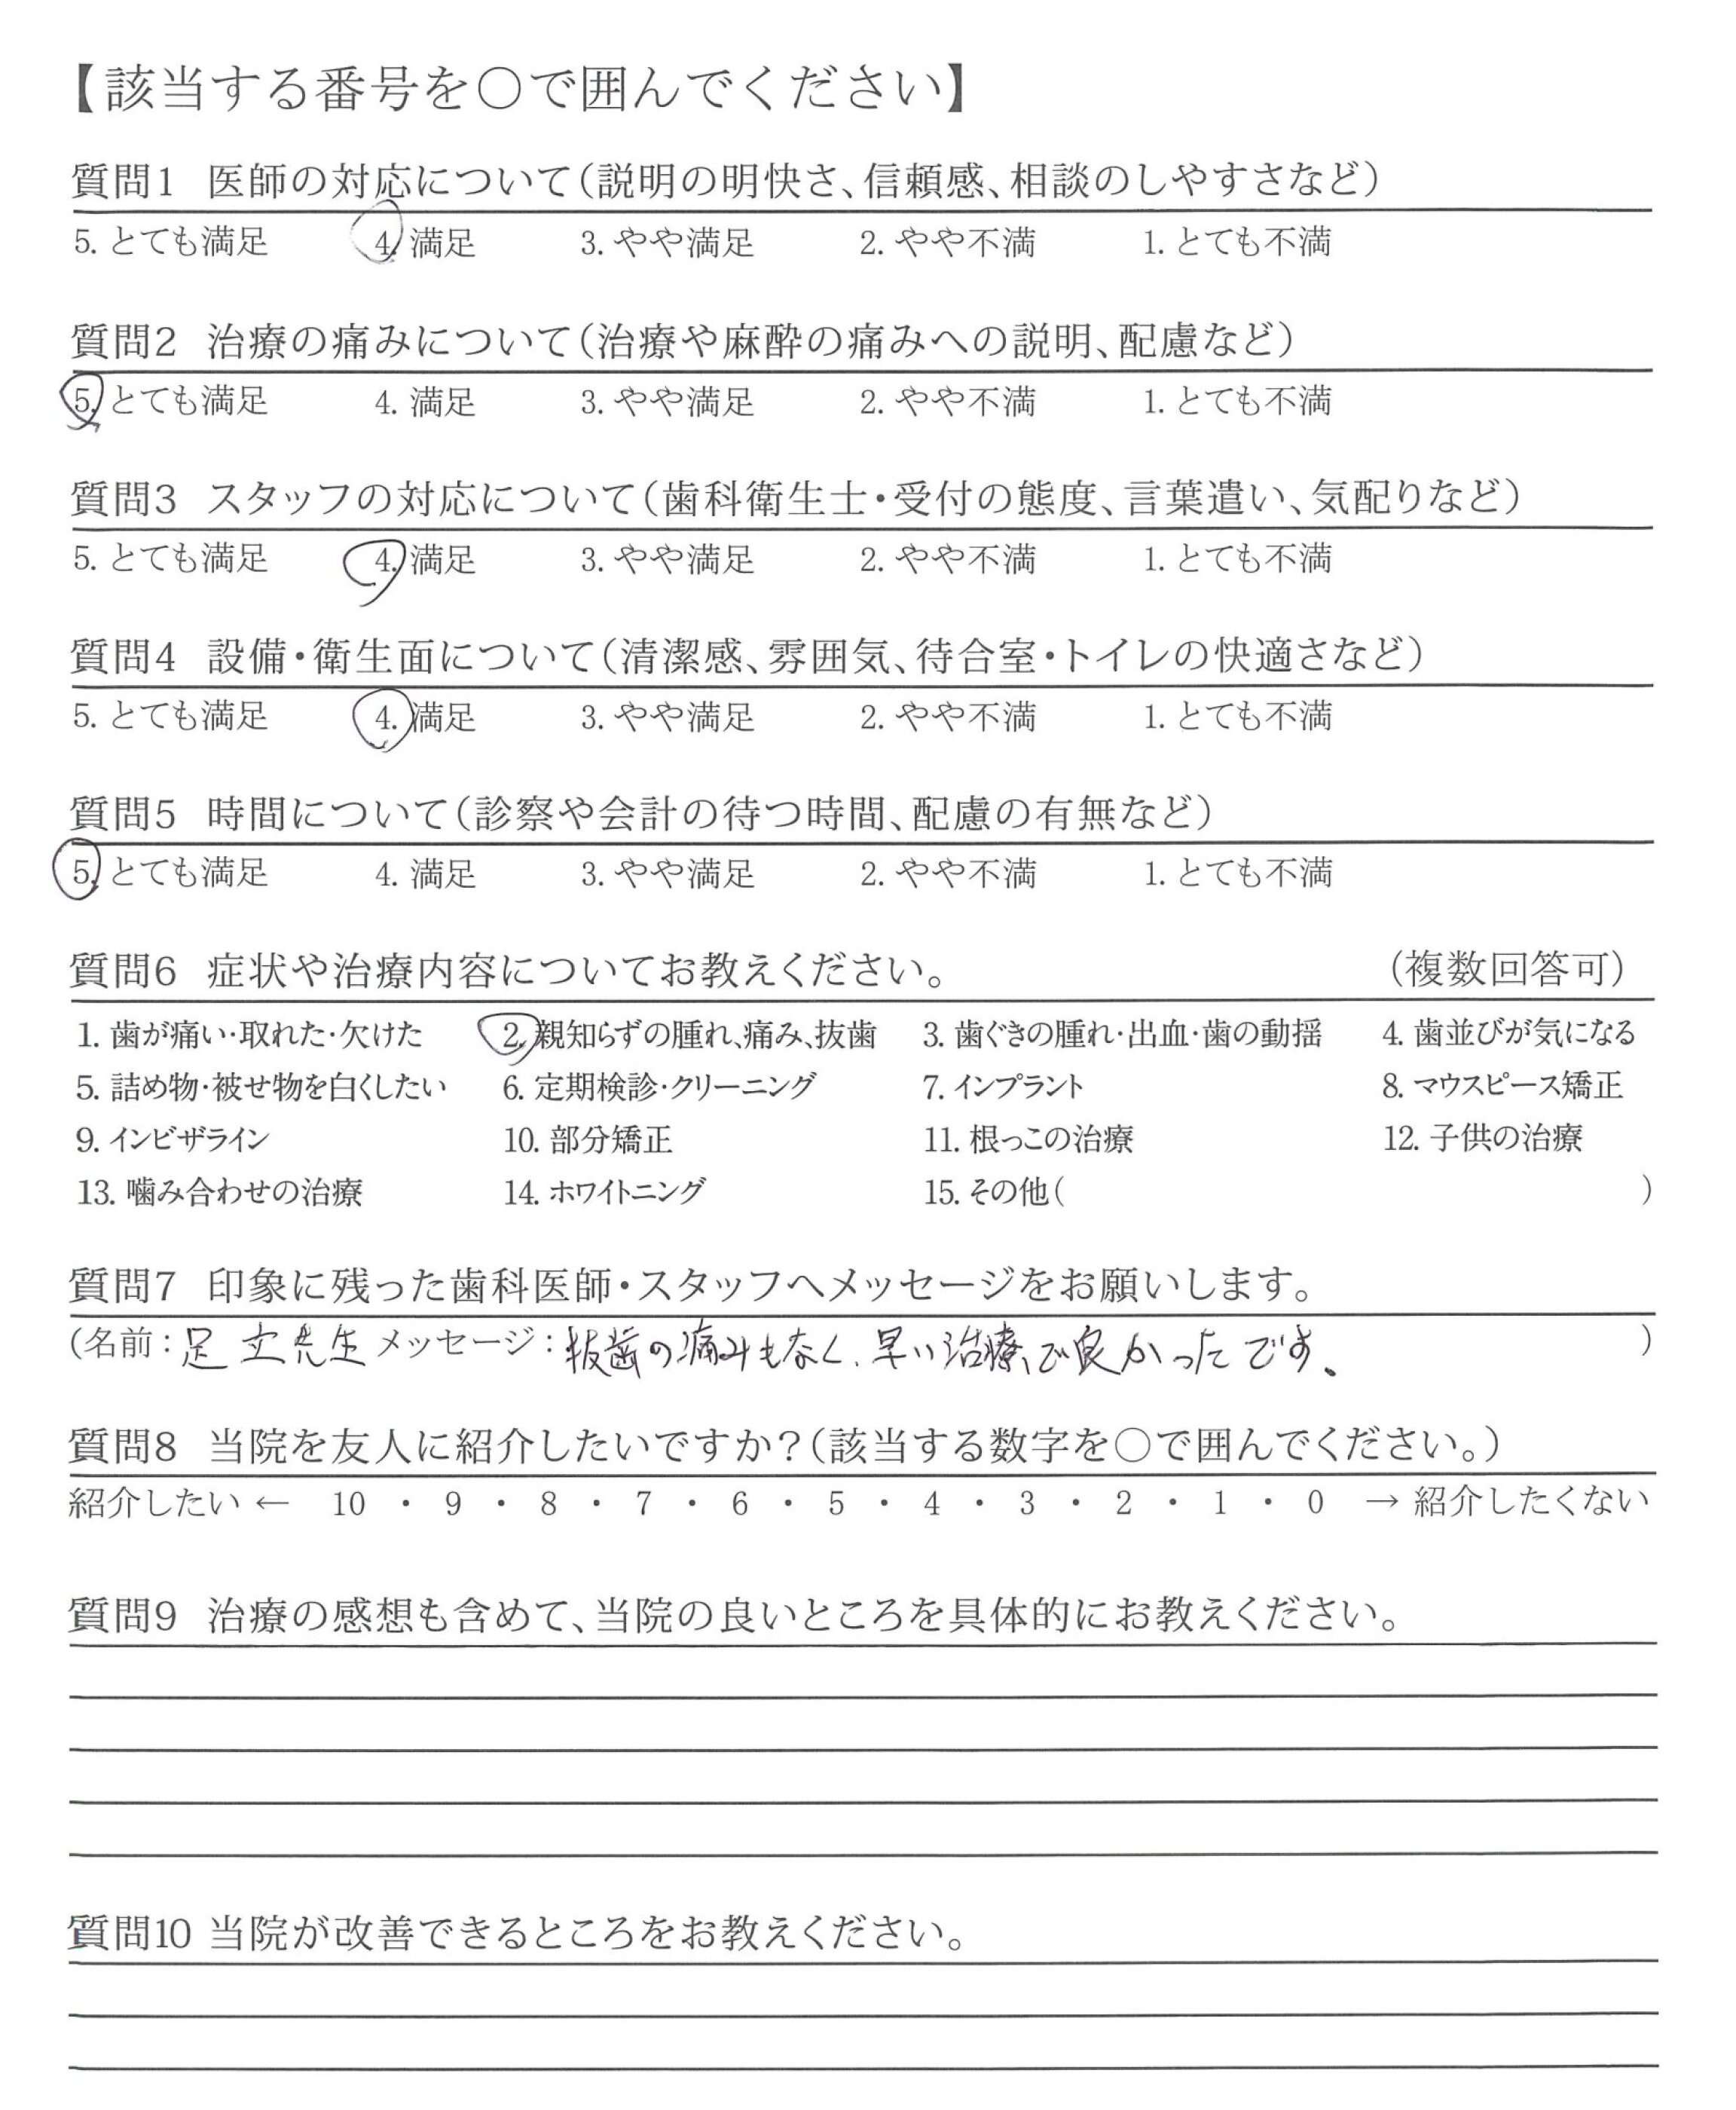 【該当する番号を○で囲んでください】
質問1 医師の対応について（説明の明快さ、信頼感、相談のしやすさなど）
5. とても満足 4. 満足 3. やや満足 2. やや不満 1. とても不満
質問2 治療の痛みについて（治療や麻酔の痛みへの説明、配慮など）
5. とても満足 4. 満足 3. やや満足 2. やや不満 1. とても不満
質問3 スタッフの対応について（歯科衛生士・受付の態度、言葉遣い、気配りなど）
5. とても満足 4. 満足 3. やや満足 2. やや不満 1. とても不満
質問4 設備・衛生面について（清潔感、雰囲気、待合室・トイレの快適さなど）
5. とても満足 4. 満足 3. やや満足 2. やや不満 1. とても不満
質問5 時間について（診察や会計の待つ時間、配慮の有無など）
5. とても満足 4. 満足 3. やや満足 2. やや不満 1. とても不満
質問6 症状や治療内容についてお教えください。 （複数回答可）
1. 歯が痛い・取れた・欠けた 2. 親知らずの腫れ、痛み、抜歯 3. 歯ぐきの腫れ・出血・歯の動揺 4. 歯並びが気になる
5. 詰め物・被せ物を白くしたい 6. 定期検診・クリーニング 7. インプラント 8. マウスピース矯正
9. インビザライン 10. 部分矯正 11. 根っこの治療 12. 子供の治療
13. 噛み合わせの治療 14. ホワイトニング 15. その他（ ）
質問7 印象に残った歯科医師・スタッフへメッセージをお願いします。
（名前：足立先生 メッセージ：抜歯の痛みもなく、早い治療で良かったです。 ）
質問8 当院を友人に紹介したいですか？（該当する数字を○で囲んでください。）
紹介したい ← 10 ・ 9 ・ 8 ・ 7 ・ 6 ・ 5 ・ 4 ・ 3 ・ 2 ・ 1 ・ 0 → 紹介したくない
質問9 治療の感想も含めて、当院の良いところを具体的にお教えください。
質問10 当院が改善できるところをお教えください。